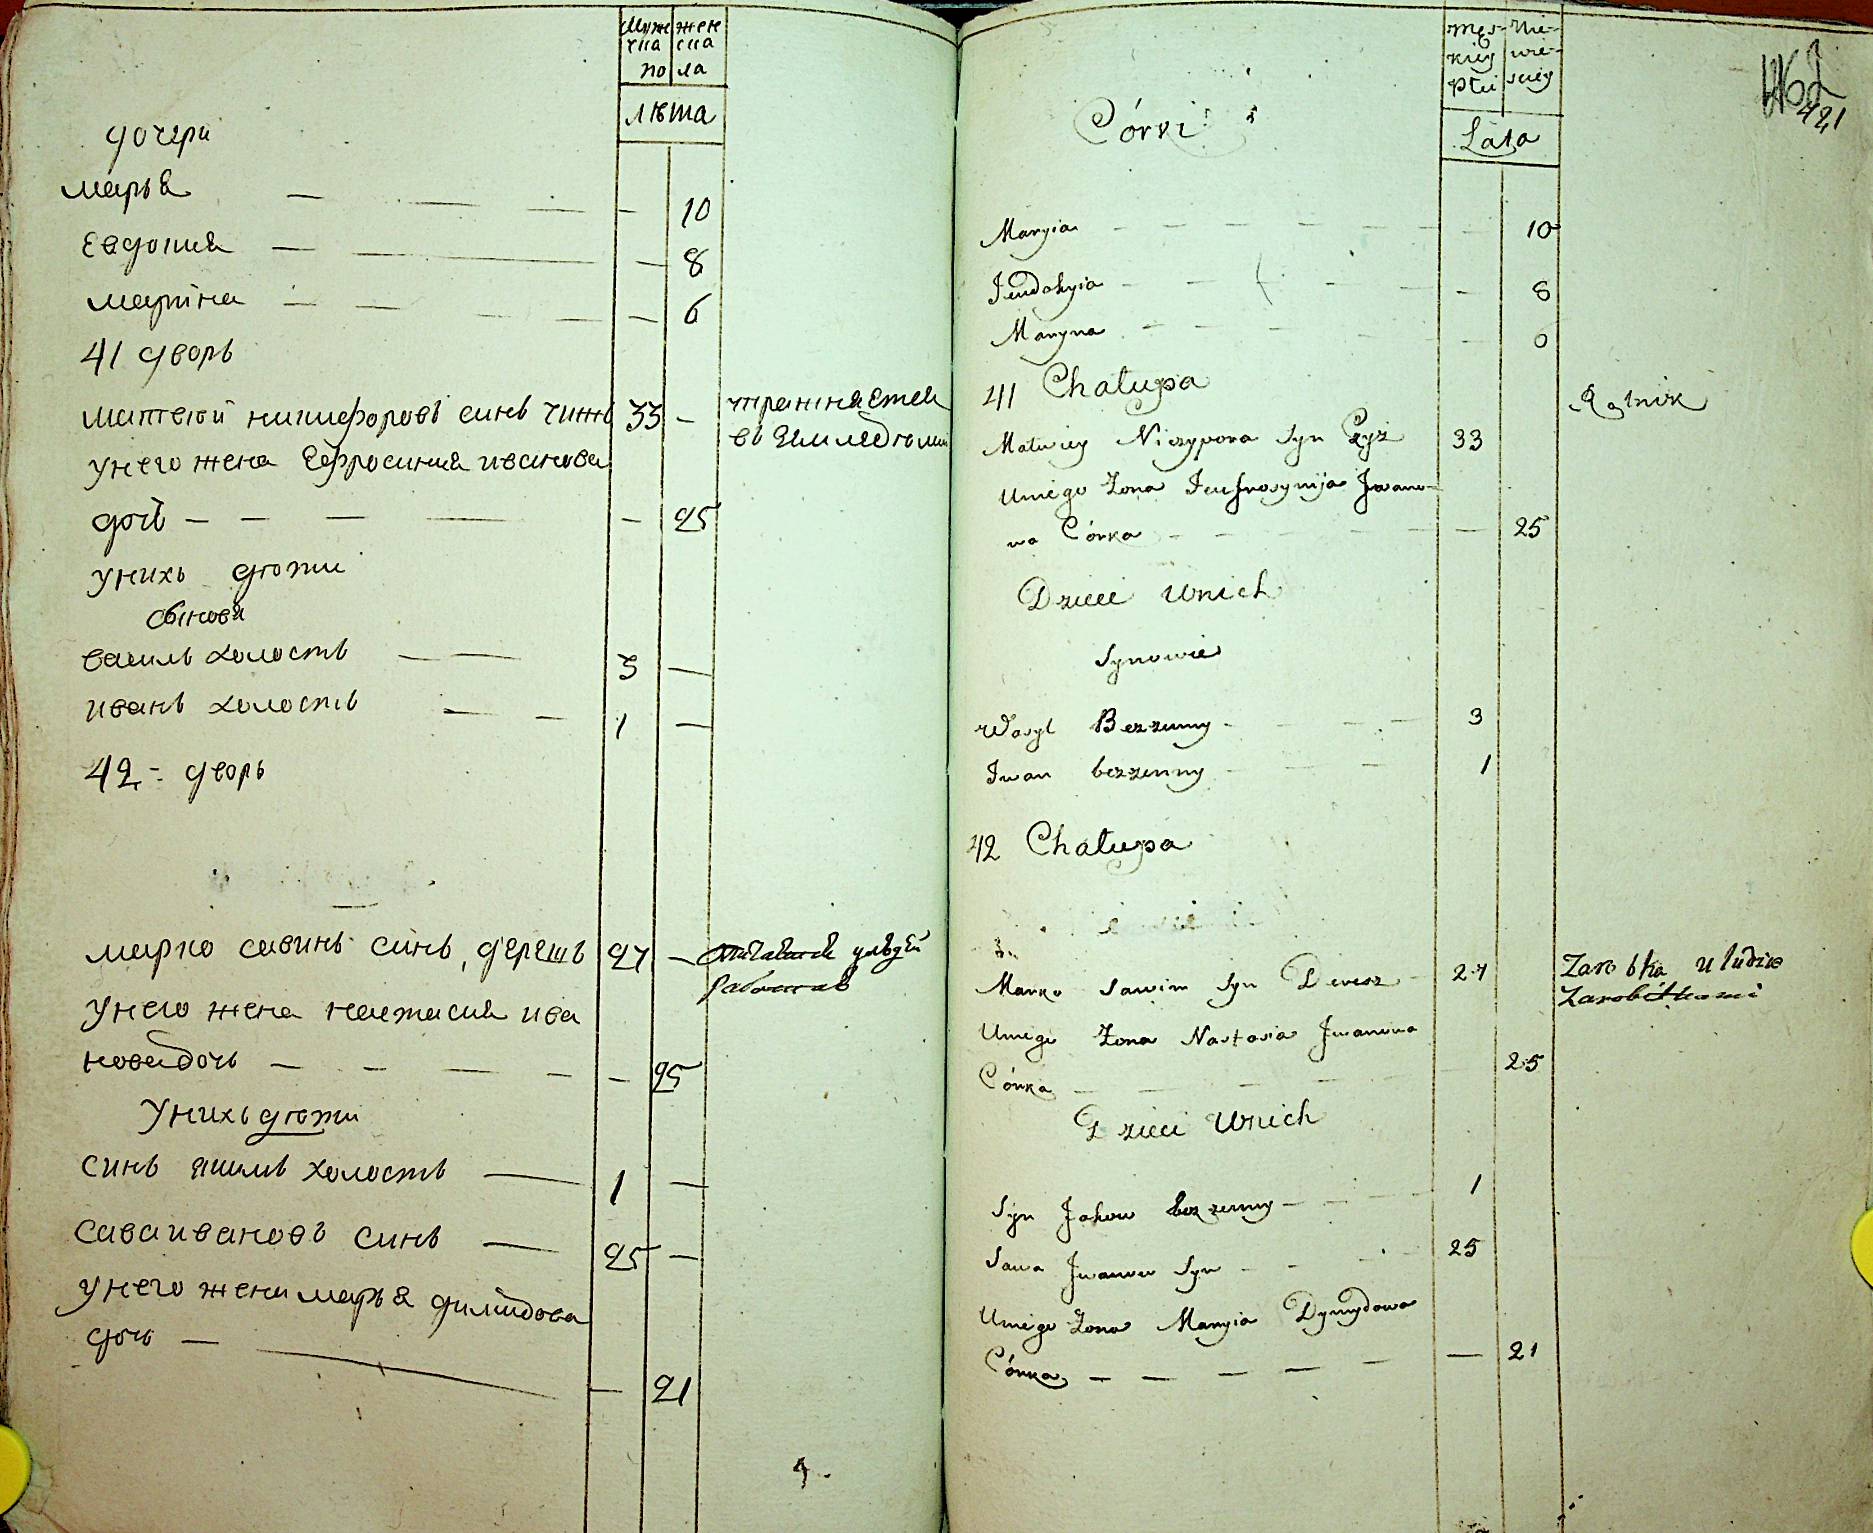 Муж жен
ска ска
по ла
лѣта
дочери
марья — — — — 10
Евдокия — — — 8
марина — — — — 6
41 дворъ
матвѣй никифоровъ синъ чижъ 33 —
унего жена Ефросиния иванова
дочь — — — — — 25
унихъ дѣти
сынови
василь холостъ — — 3 —
иванъ холостъ — — 1 —
42 - дворъ
марко савинъ синъ, дерешъ 27 — улюдей
унего жена настасия ива
нова дочь — — — — — 25
Унихъ дѣти
синъ якимъ холостъ — 1 —
сава ивановъ синъ — 25 —
унего жена марья димидова
дочь — — — 21
4.
męs- Nie-
kiey wie-
Płci sciey
Lata
421
Córki
Maryia - - - - - - - 10
Jeudokyia - - - - - - 8
Maryna - - - - - 6
41 Chałupa
Rolnik
Matwiey Niczypora Syn Czyż 33
Uniego Zona Jeufrosynija Jwano-
wa Córka - - - - - — 25
Dzieci Unich
Synowie
Wasyl Bezzenny - - - - 3
Jwan bezzenny - - - - 1
42 Chałupa
Marko Sawin Syn Deresz 27
Zarobka u ludzie
Zarobitkami
Uniego Zona Nastasia Jwanowa
Córka — — — 25
Dzieci Unich
Syn Jakow bezzenny - - - - 1
Sawa Jwanow Syn - - - 25
Uniego Zona Maryia Dymydowa
Córka — — — — — — 21